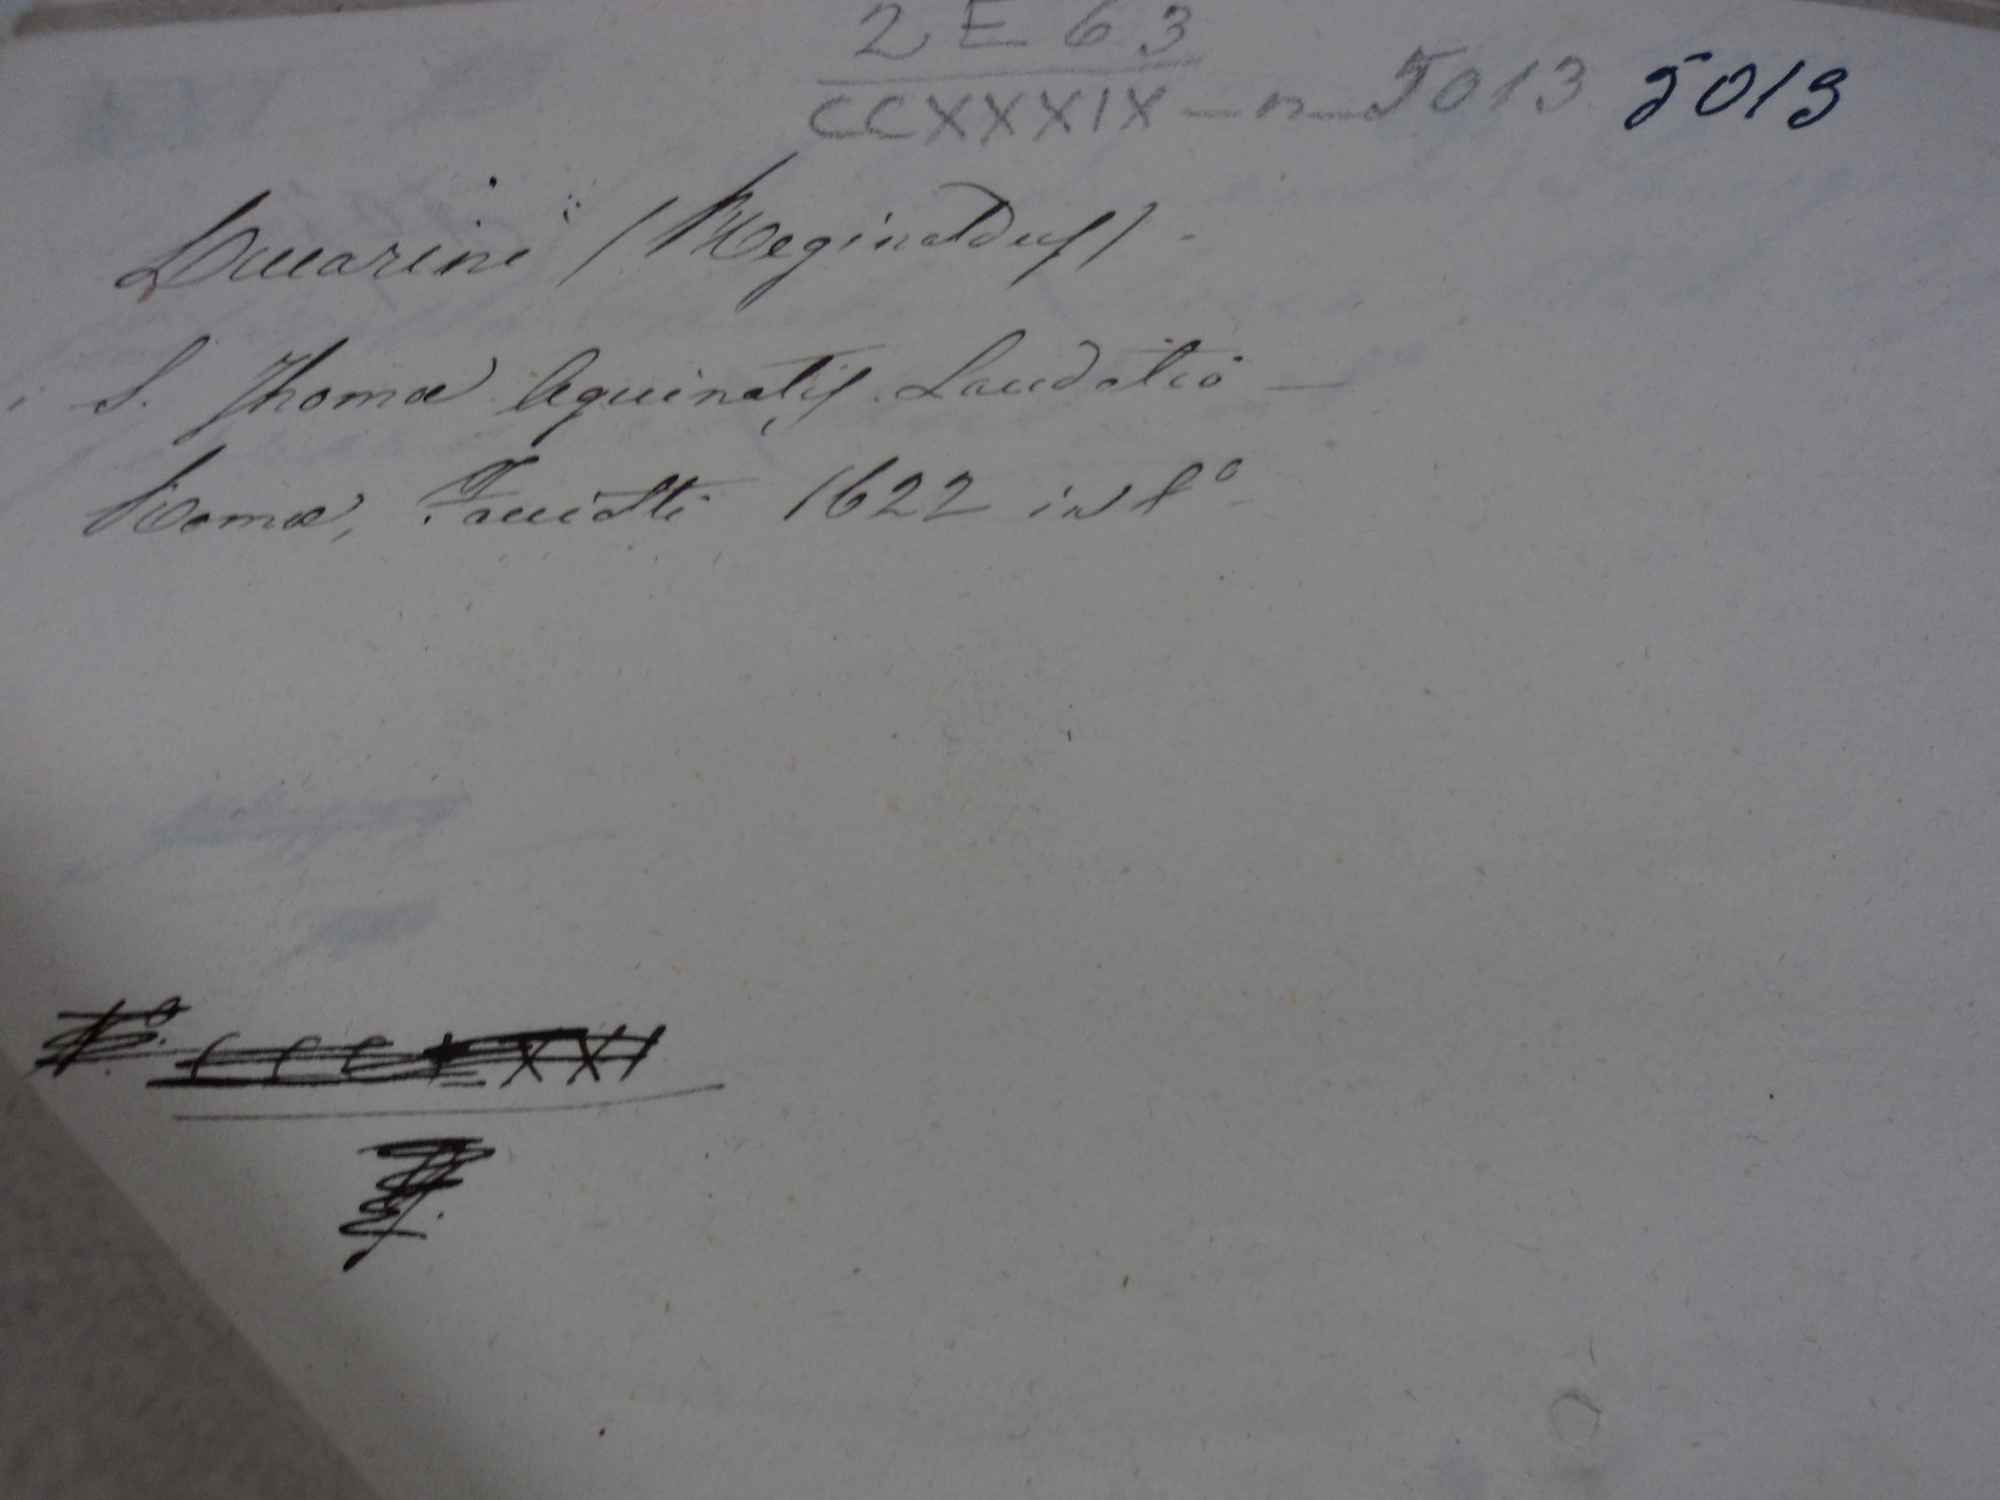 2 E 63
CCXXXIX - n - 5013 5013
Luccarini (Reginaldus) -
S. Thomæ Aquinatis Laudatio —
Romæ, Facciotti 1622 in f°